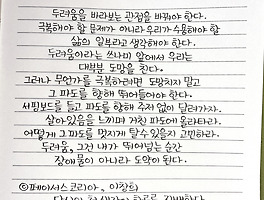 두려움을 바라보는 관점을 바꿔야 한다.
극복해야 할 문제가 아니라 우리가 수용해야 할
삶의 일부라고 생각해야 한다.
두려움이라는 쓰나미 앞에서 우리는
대부분 도망을 친다.
그러나 무언가를 극복하려면 도망치지 말고
그 파도를 향해 뛰어들어야 한다.
서핑보드를 들고 파도를 향해 주저 없이 달려가자.
살아있음을 느끼며 거친 파도에 올라타라.
어떻게 그 파도를 멋지게 탈 수 있을지 고민하라.
두려움, 그건 내가 뛰어넘는 순간
장애물이 아니라 도약이 된다.
ⓒ페이서스 코리아, 이창희